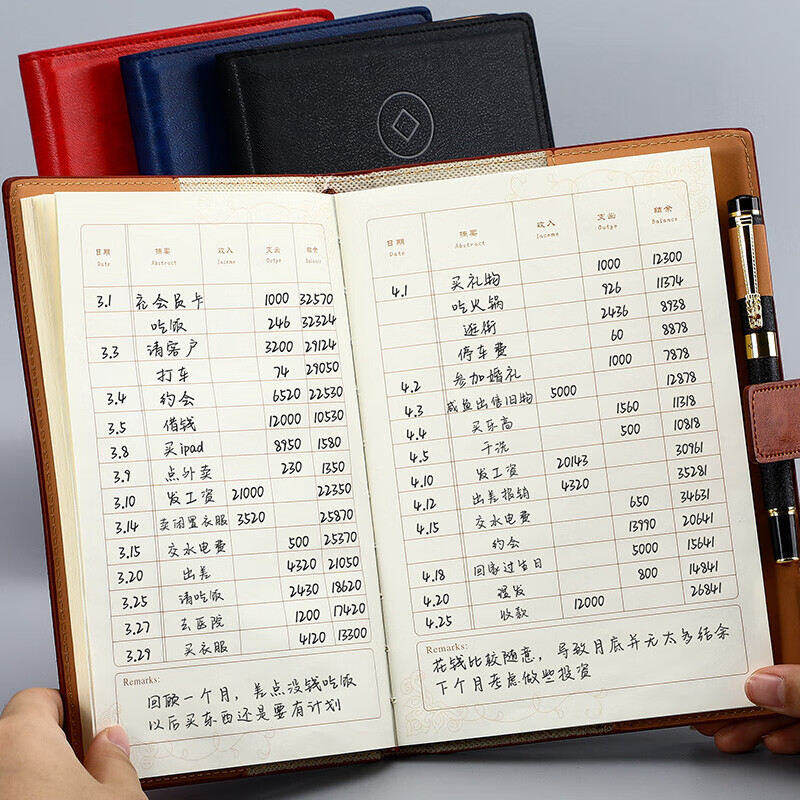 日期 摘要 收入 支出 结余
Date Abstract Income Outpe Balance
3.1 会员卡 1000 32570
吃饭 246 32324
3.3 请客户 3200 29124
打车 74 29050
3.4 约会 6520 22530
3.5 借钱 12000 10530
3.8 买ipad 8950 1580
3.9 点外卖 230 1350
3.10 发工资 21000 22350
3.14 卖闲置衣服 3520 25870
3.15 交水电费 500 25370
3.20 出差 4320 21050
3.25 请吃饭 2430 18620
3.27 去医院 1200 17420
3.29 买衣服 4120 13300
Remarks:
回顾一个月，差点没钱吃饭
以后买东西还是要有计划
日期 摘要 收入 支出 结余
Date Abstract Income Outpe Balance
4.1 买礼物 1000 12300
吃火锅 926 11374
逛街 2436 8938
停车费 60 8878
4.2 参加婚礼 1000 7878
4.3 咸鱼出售旧物 5000 12878
4.4 买乐高 1560 11318
4.5 干洗 500 10818
4.10 发工资 20143 30961
4.12 出差报销 4320 35281
4.15 交水电费 650 34631
约会 13990 20641
4.18 回家过生日 5000 15641
4.20 发 800 14841
4.25 收款 12000 26841
Remarks:
花钱比较随意，导致月底并无太多结余
下个月考虑做些投资